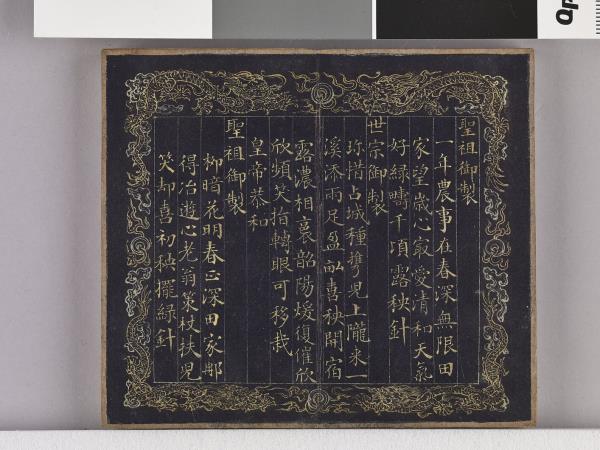 聖祖御製
一年農事在春深無限田
家望歲心㝡愛清和天氣
好綠疇千頃露秧針
世宗御製
珎惜占城種携兒上隴来一
溪添雨足盈畝喜秧開宿
露濃相裛韶陽煖復催欣
欣頻笑指轉眼可移栽
皇帝恭和
聖祖御製
柳暗花明春正深田家那
得冶遊心老翁策杖扶兒
笑却喜初秧擢綠針